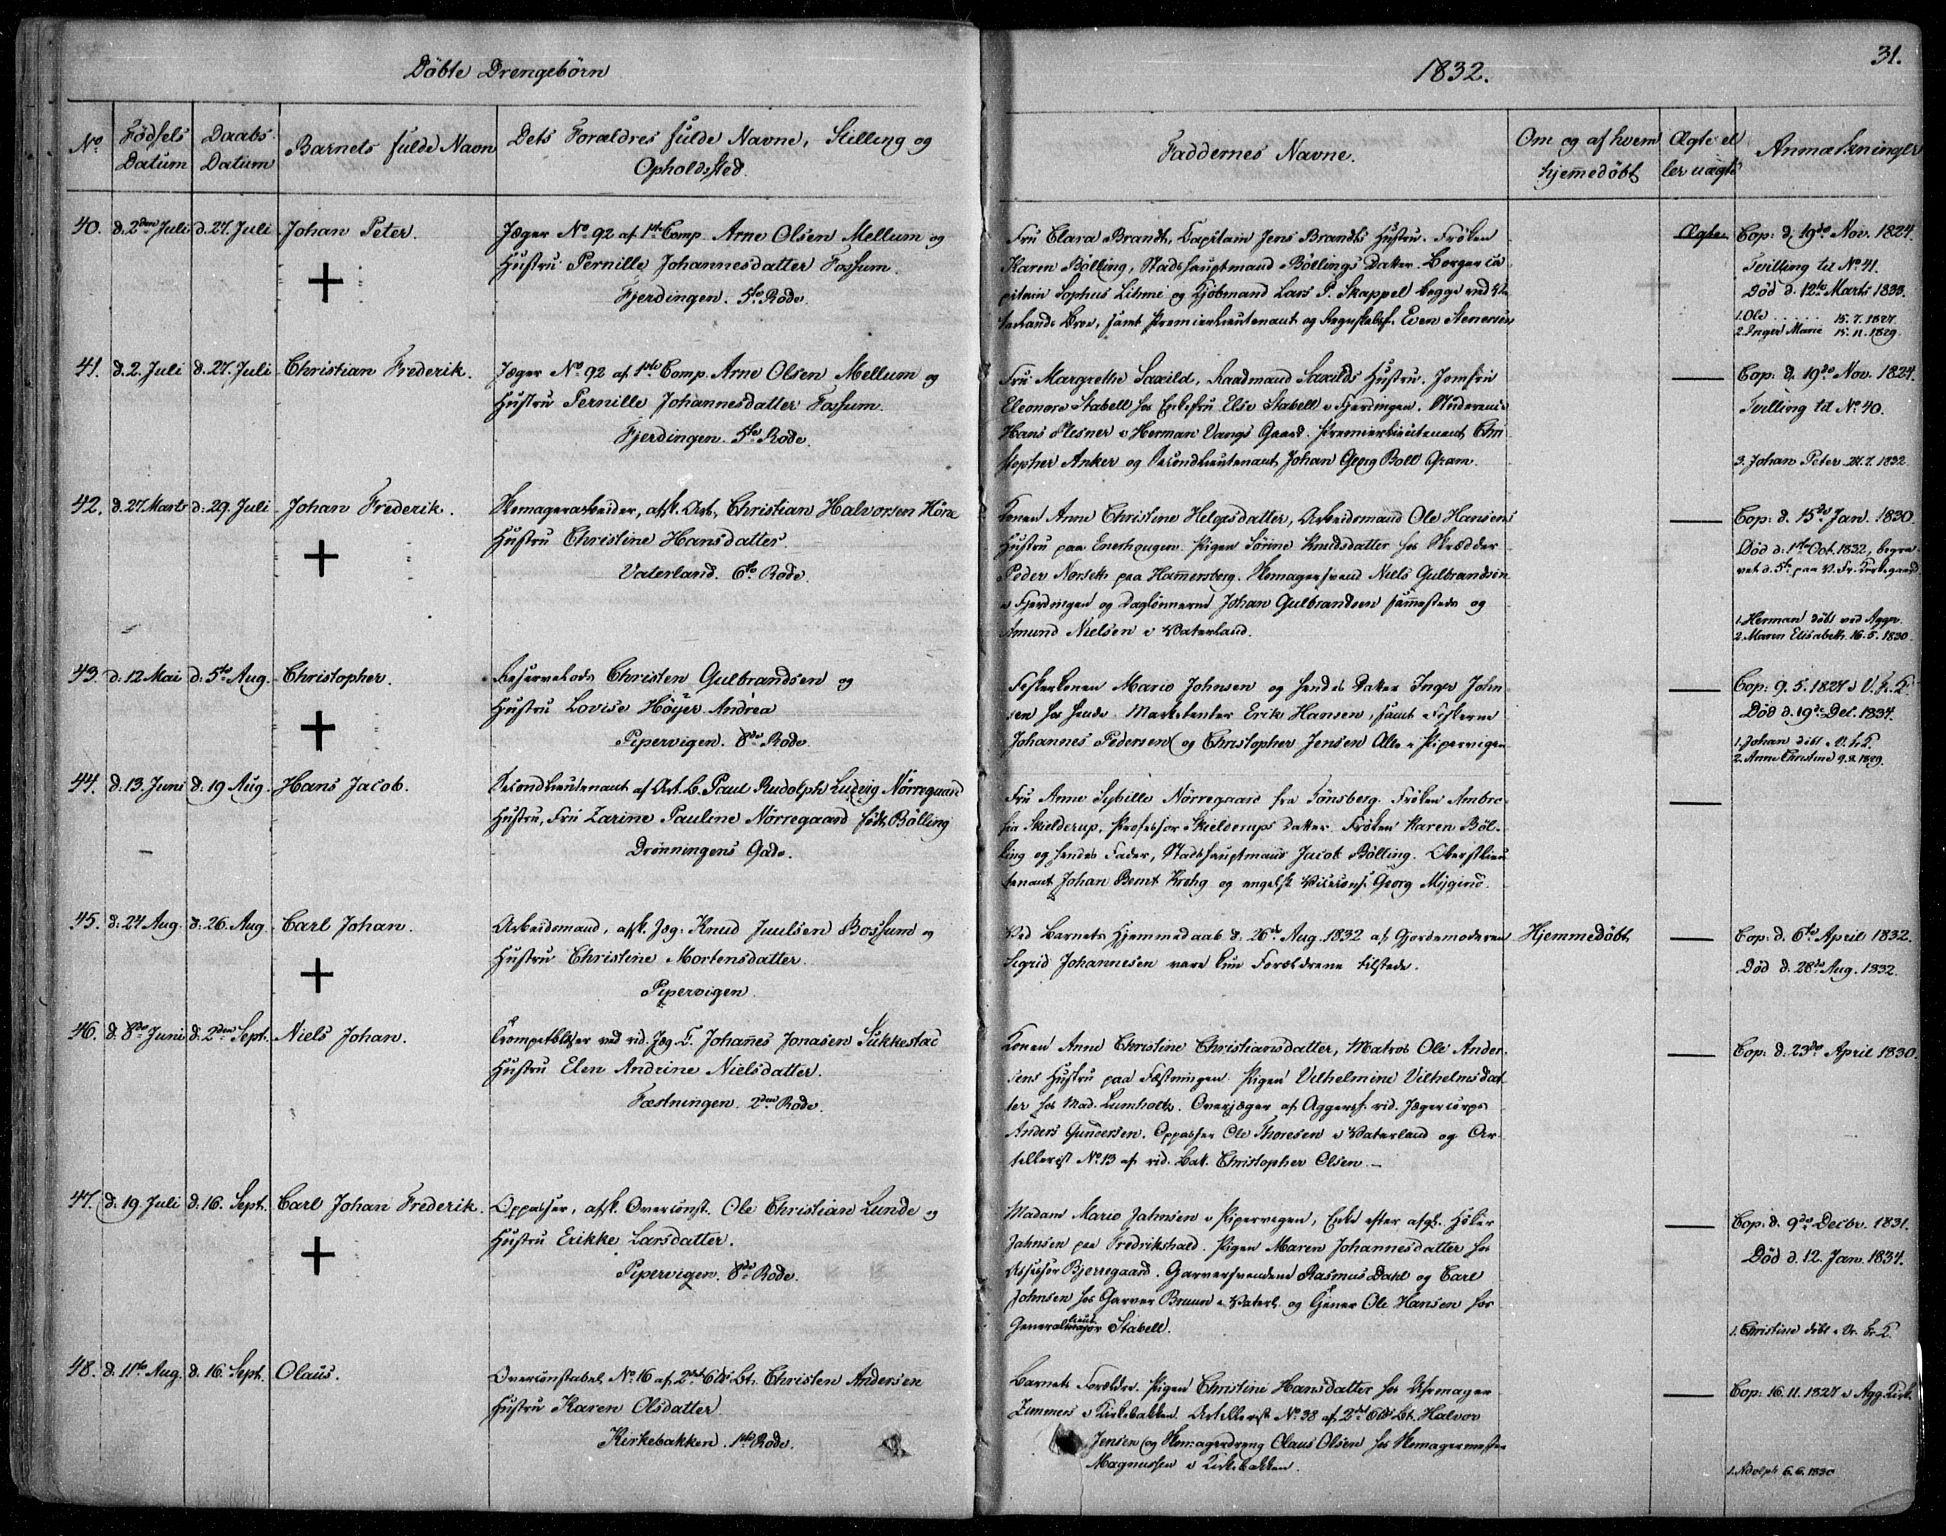 Döbte Drengebörn
1832.
31.
No
Födsels Datum
Daabs Datum
Barnets fulde Navn
Dets Forældres fulde Navne, Stilling og Opholdssted.
Faddernes Navne.
Om og af hvem hjemmedöbt
Ægte el ler uægte
Anmærkninger
40. d. 2den Juli d. 27. Juli Johan Peter.
Jæger No 92 af 1ste Comp. Arne Olsen Mellum og
Hustru Pernille Johannesdatter Fossum.
Fjerdingen. 5te Rode.
Fru Clara Brandt, Capitain Jens Brandts Hustru. Fröken
Karen Bölling, Stadshauptmand Böllings Datter. Borgerca
pitain Sophus Lihme og Kjöbmand Lars P. Skappel begge ved Va
terlands Broe, samt Premierlieutenant og Regnskabsf. Even Stenersen
Ægte
Cop: d. 19de Nov. 1824.
Tvilling til No 41.
Död d. 12te Marts 1833.
1. Ole . . . . . . 15. 7. 1827.
2. Inger Marie 15. 11. 1829.
41. d. 2. Juli d. 27. Juli Christian Frederik.
Jæger No 92 af 1ste Comp. Arne Olsen Mellum og
Hustru Pernille Johannesdatter Fossum.
Fjerdingen. 5te Rode.
Fru Margrethe Saxild, Raadmand Saxilds Hustru. Jomfru
Eleonore Stabell hos Enkefru Else Stabell i Fjerdingen. Studerende
Hans Plesner i Herman Vangs Gaard. Premierlieutenant Chri
stopher Anker og Secondlieutenant Johan Georg Boll Gram.
Cop: d. 19de Nov. 1824.
Tvilling til No 40.
3. Johan Peter 27. 7. 1832
42. d. 27 Marts d. 29. Juli Johan Frederik.
Skomagerarbeider, afsk. Art. Christian Halvorsen Höne
Hustru Christine Hansdatter.
Vaterland. 6te Rode.
Konen Anne Christine Helgesdatter, Arbeidsmand Ole Hansens
Hustru paa Enerhaugen. Pigen Sörine Knudsdatter hos Skrædder
Peder Norseth paa Hammersborg. Skomagersvend Niels Gulbrandsen
i Fjerdingen og Daglönnerne Johan Gulbrandsen sammesteds og
Amund Nielsen i Vaterland.
Cop: d. 15de Jan. 1830.
Död d. 1ste Oct. 1832, begra
vet d. 5te paa V. Fr. Kirkegaard
1. Herman döbt ved Agger.
2. Maren Elisabeth 16. 5. 1830.
43. d. 12 Mai d. 5te Aug. Christopher.
Reservekods Christen Gulbrandsen og
Hustru Lovise Höyer Andrea
Pipervigen. 8de Rode.
Feskerkonen Marie Johnsen og hendes Datter Inger John
sen hos hende. Marketenter Erik Hansen, samt Feskerne
Johannes Pedersen og Christopher Jensen Alle i Pipervigen
Cop: 9. 5. 1827 i V. F. K.
Död d. 19de Dec. 1834.
1. Johan döbt i V. F. K.
2. Anne Christine 9. 8. 1829.
44. d. 13. Juni d. 19 Aug. Hans Jacob.
Secondlieutenant af Art. B. Paul Rudolph Ludvig Nörregaard
Hustru, Fru Zarine Pauline Nörregaard födt Bölling
Dronningens Gade.
Fru Anne Sybille Nörregaard fra Tönsberg. Fröken Ambro
sia Skielderup, Professor Skielderups Datter. Fröken Karen Böl
ling og hendes Fader, Stadshauptmand Jacob Bölling. Oberstlieu
tenant Johan Bernt Krohg og engelsk Viceconsul Georg Mygind.
45. d. 24 Aug. d. 26. Aug. Carl Johan.
Arbeidsmand, afsk. Jæg. Knud Juulsen Bossum og
Hustru Christine Mortensdatter.
Pipervigen.
Ved Barnets Hjemmedaab d. 26de Aug. 1832 af Gjordemoderen
Sigrid Johannesen vare kun Forældrene tilstede.
Hjemmedöbt
Cop: d. 6te April 1832.
Död d. 28de Aug. 1832.
46. d. 8de Juni d. 2den Sept. Niels Johan.
Trompetblæser ved rid. Jæg. C. Johannes Jonasen Sukkestad
Hustru Elen Andrine Nielsdatter.
Fæstningen. 2den Rode.
Konen Anne Christine Christiansdatter, Matros Ole Ander
sens Hustru paa Fæstningen. Pigen Vilhelmine Vilhelmsdat
ter hos Mad. Lumholtz. Overjæger af Aggersh. rid. Jægercorps
Anders Gundersen. Oppasser Ole Thoresen i Vaterland og Ar
tillerist No 13 af rid. Bat. Christopher Olsen. —
Cop: d. 23de April 1830.
47. d. 19. Juli d. 16. Sept. Carl Johan Frederik.
Oppasser, afsk. Overconst. Ole Christian Lunde og
Hustru Erikke Larsdatter.
Pipervigen. 8de Rode.
Madam Marie Jahnsen i Pipervigen, Enke efter afgl. Höker
Jahnsen paa Fredrikshald. Pigen Maren Johannesdatter hos
Assessor Bjerregaard. Garversvendene Rasmus Dahl og Carl
Johnsen hos Garver Bruun i Vaterl. og Tjener Ole Hansen hos
Generallieut Stabell.
Cop: d. 9de Decbr. 1831.
Död d. 12. Jan. 1834.
1. Christine döbt i Vr. Fr. K.
48. d. 11te Aug. d. 16. Sept. Olaus.
Overconstabel No 16 af 2det 6 lb. Bt. Christen Andersen
Hustru Karen Olsdatter.
Kirkebakken. 1ste Rode.
Barnets Forældre. Pigen Christine Hansdatter hos Uhrmager
Zummers i Kirkebakken. Artillerist No 38 af 2det 6 lb. Bt. Halvor
Jensen og Skomagerdreng Claus Olsen hos Skomagermester
Magnussen i Kirkebakken.
Cop: 16. 11. 1827 i Agg. Kirk.
1. Adolph 6. 6. 1830